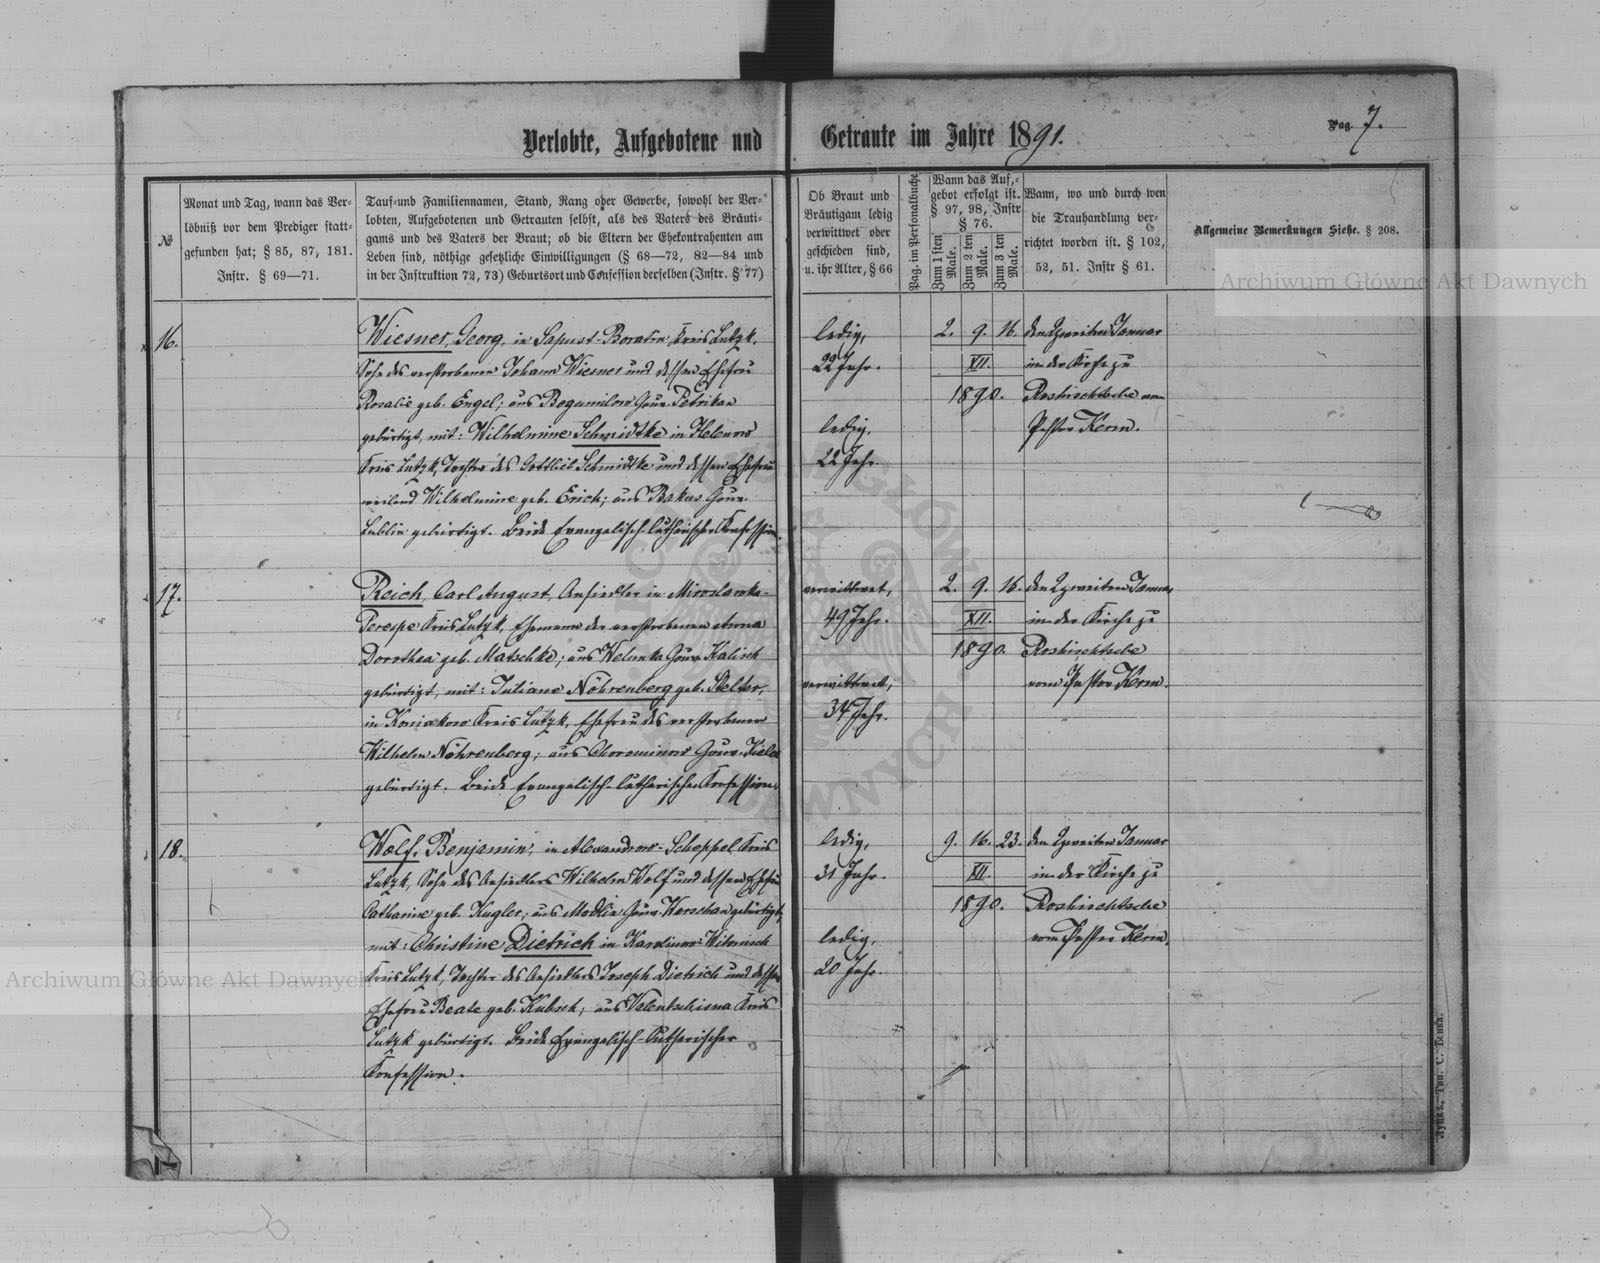 Verlobte, Aufgebotene und Getraute im Jahre 1891.
Pag. 7.
№
Monat und Tag, wann das Ver-
löbniß vor dem Prediger statt-
gefunden hat; § 85, 87, 181.
Instr. § 69—71.
Tauf- und Familiennamen, Stand, Rang oder Gewerbe, sowohl der Ver-
lobten, Aufgebotenen und Getrauten selbst, als des Vaters des Bräuti-
gams und des Vaters der Braut; ob die Eltern der Ehekontrahenten am
Leben sind, nöthige gesetzliche Einwilligungen (§ 68—72, 82—84 und
in der Instruktion 72, 73) Geburtsort und Confession derselben (Instr. § 77)
Ob Braut und
Bräutigam ledig
verwittwet oder
geschieden sind,
u. ihr Alter, § 66
Pag. im Personalbuche
Wann das Auf-
gebot erfolgt ist.
§ 97, 98, Instr
§ 76.
Zum 1 ten Male.
Zum 2 ten Male.
Zum 3 ten Male.
Wann, wo und durch wen
die Trauhandlung ver-
richtet worden ist. § 102,
52, 51. Instr § 61.
Allgemeine Bemerkungen Siehe. § 208.
16.
Wiesner, Georg, in Sapust-Boratin, Kreis Lutzk,
Sohn des verstorbenen Johann Wiesner und dessen Ehefrau
Rosalie geb. Engel; aus Bogumilow Gouv. Petrikau
gebürtigt, mit: Wilhelmine Schmidtke in Helenow
Kreis Lutzk, Tochter des Gottlieb Schmidtke und dessen Ehefrau
weiland Wilhelmine geb. Erich; aus Bakus Gouv.
Lublin gebürtigt. Beide Evangelisch-lutherischer Konfession.
ledig,
22 Jahr.
ledig,
22 Jahr.
2. 9. 16.
XII.
1890.
den Zweiten Januar
in der Kirche zu
Roshischtsche vom
Pastor Kerm.
17.
Reich, Carl August, Ansiedler in Miroslawka-
Perespe Kreis Lutzk, Ehemann der verstorbenen Anna
Dorothea geb. Matschke; aus Gouv. Kalisch
gebürtigt, mit: Juliane Nöhrenberg geb. Stelter,
in Kreis Lutzk, Ehefrau des verstorbenen
Wilhelm Nöhrenberg; aus Gouv. Kielce
gebürtigt. Beide Evangelisch-lutherischer Konfession.
verwittwet,
49 Jahr.
verwittwet,
34 Jahr.
2. 9. 16.
XII.
1890.
den Zweiten Januar
in der Kirche zu
Roshischtsche
vom Pastor Kerm.
18.
Wolf, Benjamin, in Alexandrow-Scheppel, Kreis
Lutzk, Sohn des Ansiedlers Wilhelm Wolf und dessen Ehefrau
Catharine geb. Kugler; aus Modlin Gouv. Warschau gebürtigt,
mit: Christine Dietrich in Karolinow-Witonisch
Kreis Lutzk, Tochter des Ansiedlers Joseph Dietrich und dessen
Ehefrau Beate geb. Kubsch; aus Kreis
Lutzk gebürtigt. Beide Evangelisch-Lutherischer
Konfession.
ledig,
31 Jahr.
ledig,
20 Jahr.
9. 16. 23.
XII.
1890.
den Zweiten Januar
in der Kirche zu
Roshischtsche
vom Pastor Kerm.
Луцкъ, Тип. С. Бонка.
Archiwum Główne Akt Dawnych
Archiwum Główne Akt Dawnych